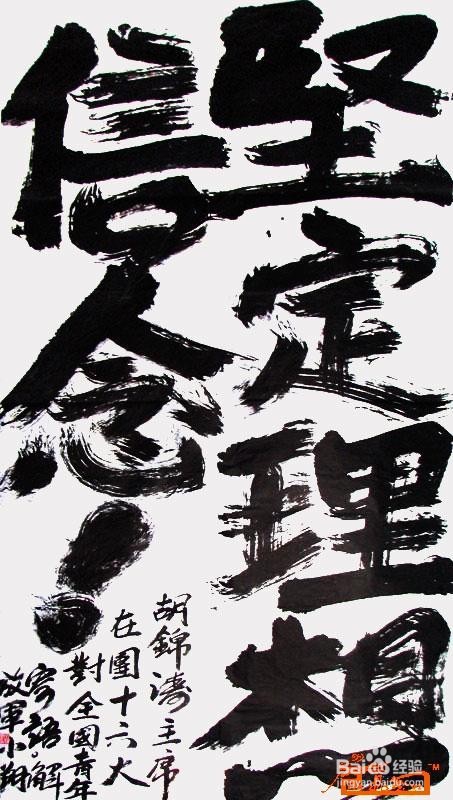 坚定理想
信念！
胡錦濤主席
在團十六大
對全國青年
寄語解
放軍小翔
Baidu经验
jingyan.baidu.com